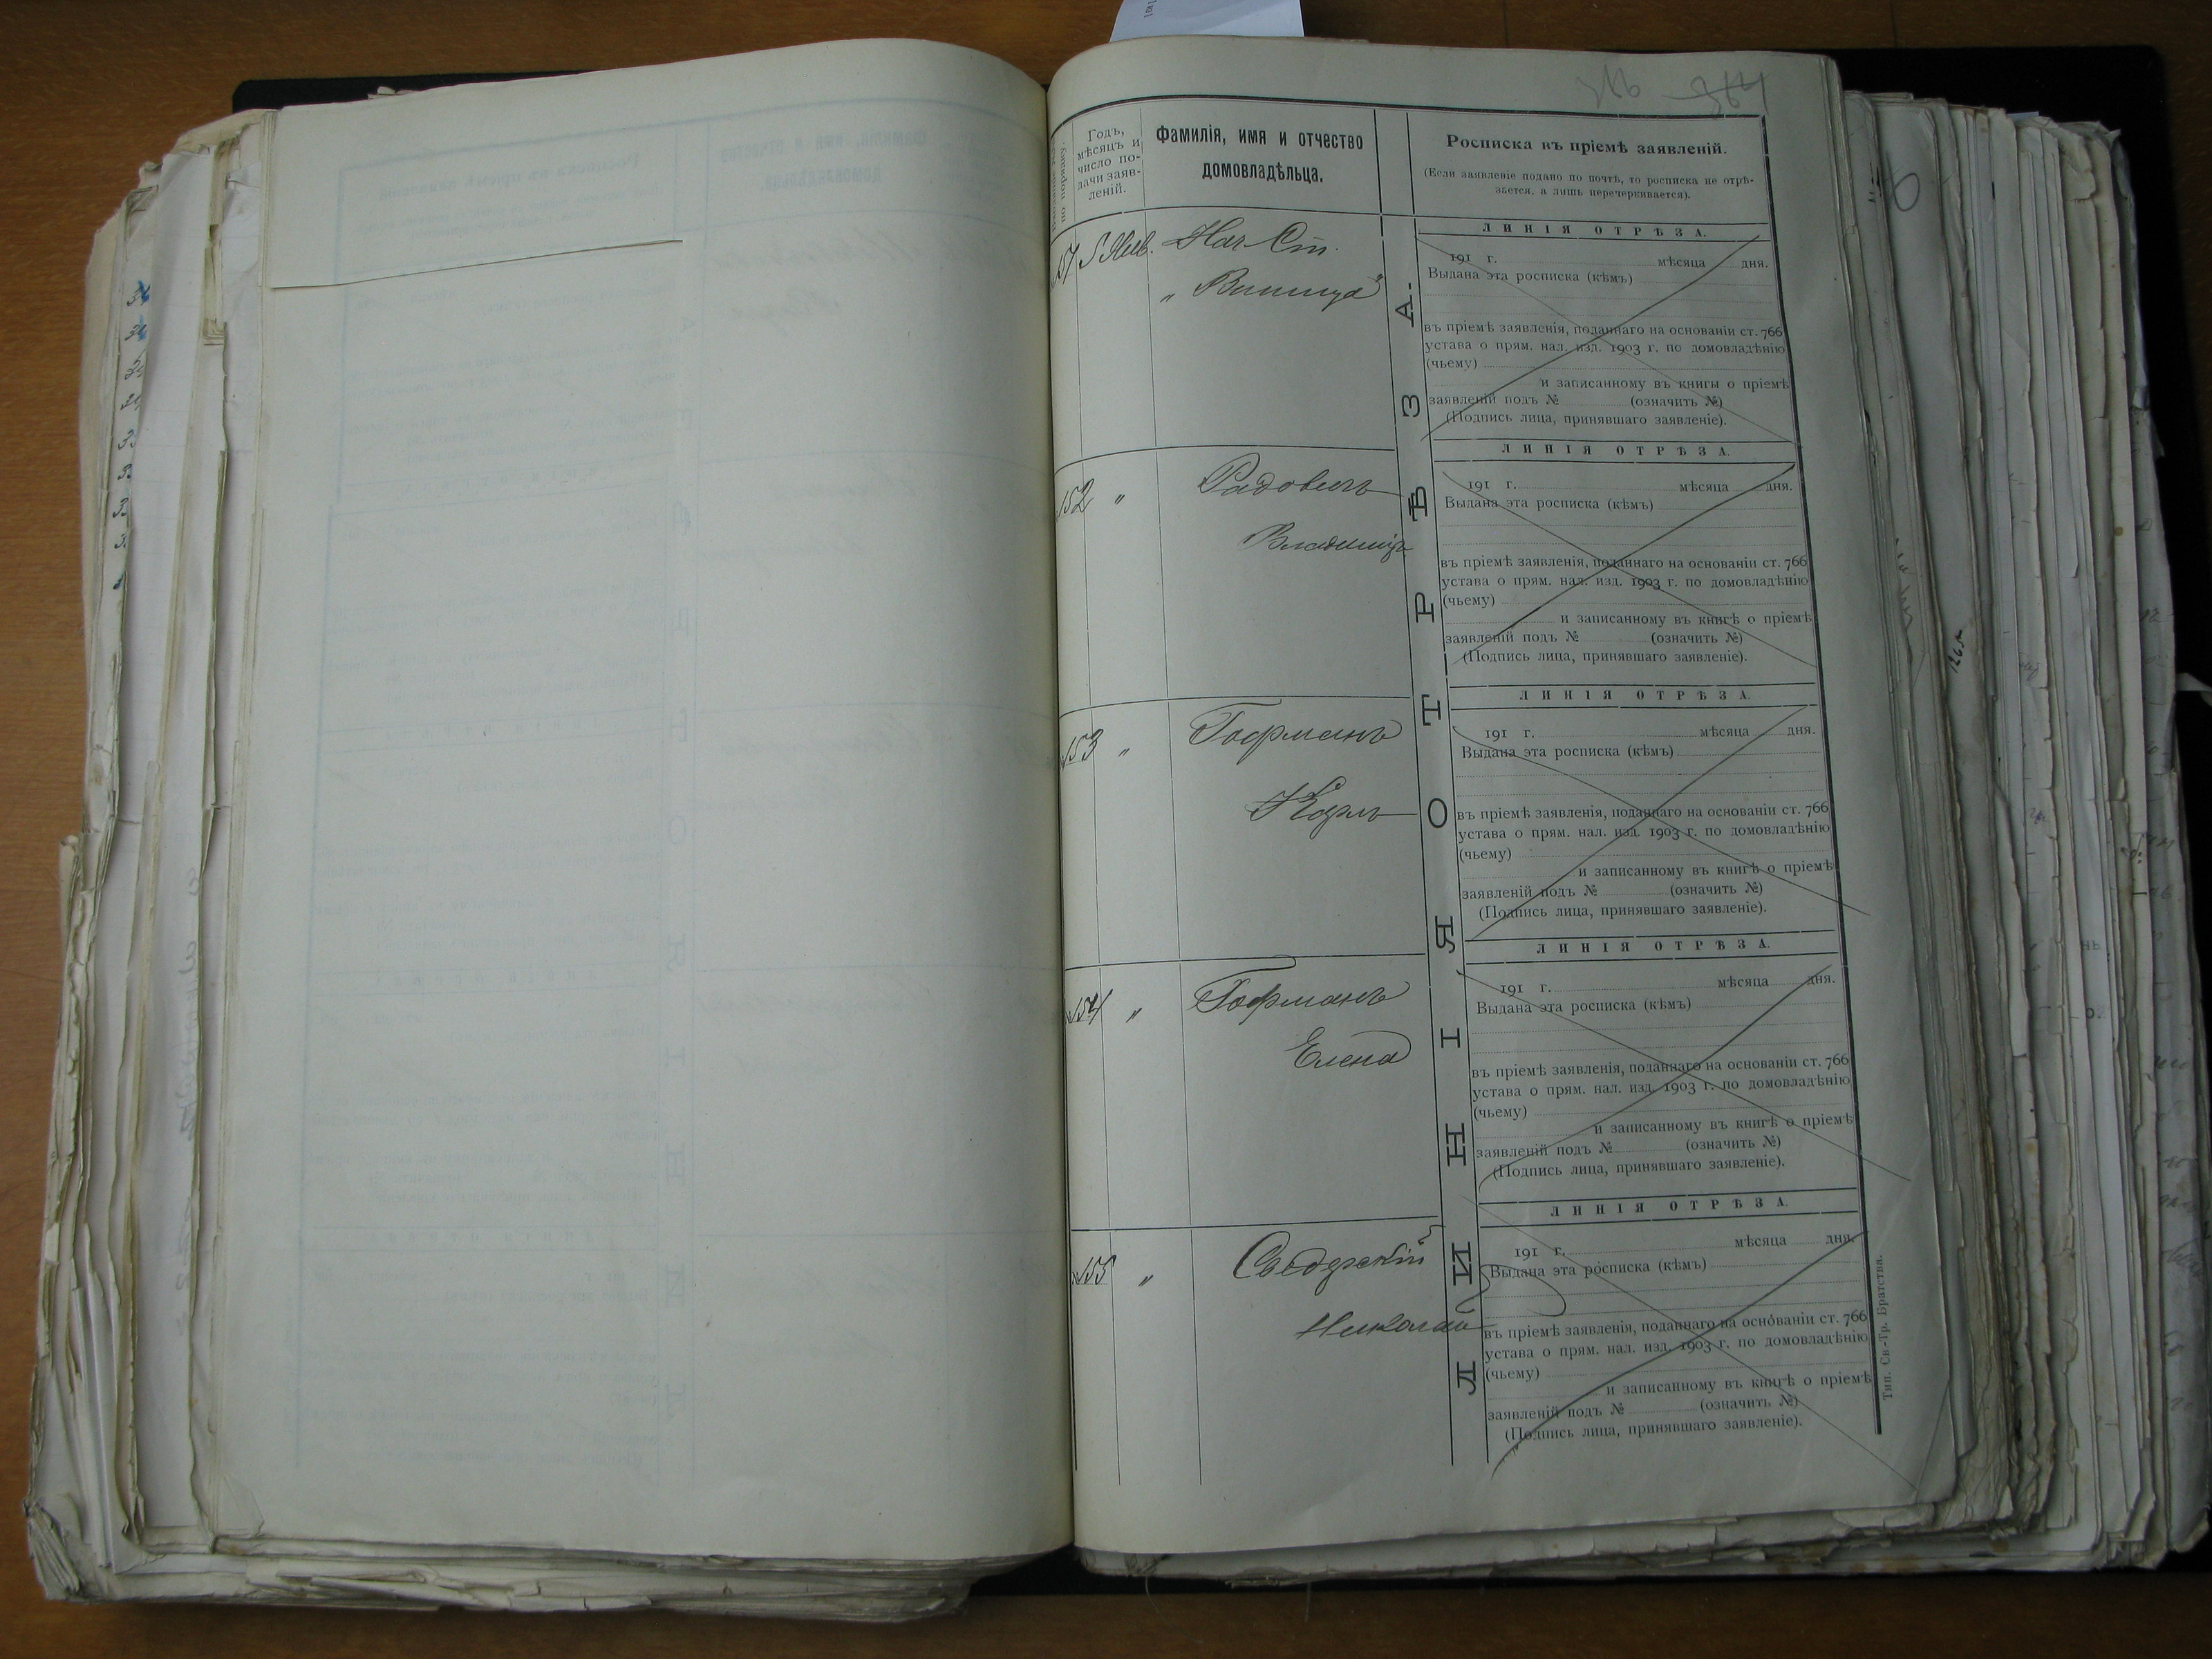 Годъ,
мѣсяцъ и
число по-
дачи заяв-
леній.
Фамилія, имя и отчество
домовладѣльца.
Росписка въ пріемѣ заявленій.
(Если заявленіе подано по почтѣ, то росписка не отрѣ-
зается, а лишь перечеркивается).
ЛИНІЯ ОТРѢЗА.
151 5 Янв. Нач. Ст.
„Винница"
ЛИНІЯ ОТРѢЗА.
191 г. мѣсяца дня.
Выдана эта росписка (кѣмъ)
въ пріемѣ заявленія, поданнаго на основаніи ст. 766
устава о прям. нал. изд. 1903 г. по домовладѣнію
(чьему)
и записанному въ книгы о пріемѣ
заявленій подъ № (означить №)
(Подпись лица, принявшаго заявленіе).
152 „ Радовичъ
Владиміръ
ЛИНІЯ ОТРѢЗА.
191 г. мѣсяца дня.
Выдана эта росписка (кѣмъ)
въ пріемѣ заявленія, поданнаго на основаніи ст. 766
устава о прям. нал. изд. 1903 г. по домовладѣнію
(чьему)
и записанному въ книгѣ о пріемѣ
заявленій подъ № (означить №)
(Подпись лица, принявшаго заявленіе).
153 „ Гофманъ
Карлъ
ЛИНІЯ ОТРѢЗА.
191 г. мѣсяца дня.
Выдана эта росписка (кѣмъ)
въ пріемѣ заявленія, поданнаго на основаніи ст. 766
устава о прям. нал. изд. 1903 г. по домовладѣнію
(чьему)
и записанному въ книгѣ о пріемѣ
заявленій подъ № (означить №)
(Подпись лица, принявшаго заявленіе).
154 „ Гофманъ
Елена
ЛИНІЯ ОТРѢЗА.
191 г. мѣсяца дня.
Выдана эта росписка (кѣмъ)
въ пріемѣ заявленія, поданнаго на основаніи ст. 766
устава о прям. нал. изд. 1903 г. по домовладѣнію
(чьему)
и записанному въ книгѣ о пріемѣ
заявленій подъ № (означить №)
(Подпись лица, принявшаго заявленіе).
155 „
Николай
ЛИНІЯ ОТРѢЗА.
191 г. мѣсяца дня.
Выдана эта росписка (кѣмъ)
въ пріемѣ заявленія, поданнаго на основаніи ст. 766
устава о прям. нал. изд. 1903 г. по домовладѣнію
(чьему)
и записанному въ книгѣ о пріемѣ
заявленій подъ № (означить №)
(Подпись лица, принявшаго заявленіе).
Тип. Св.-Тр. Братства.